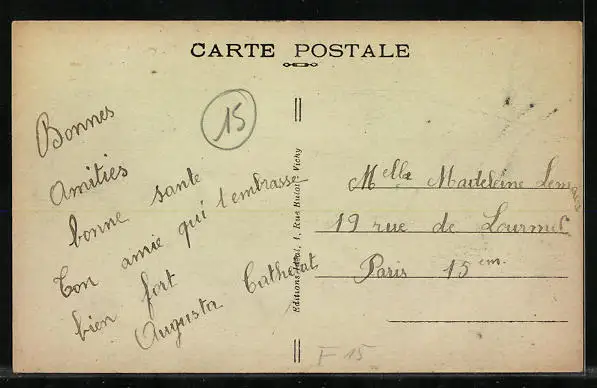 CARTE POSTALE
15
Bonnes
Amities
bonne sante
Ton amie qui t'embrasse
bien fort
Augusta
Editions 1, Rue Vichy
Melle Madeleine
19 rue de Lourmel
Paris 15 em.
F 15